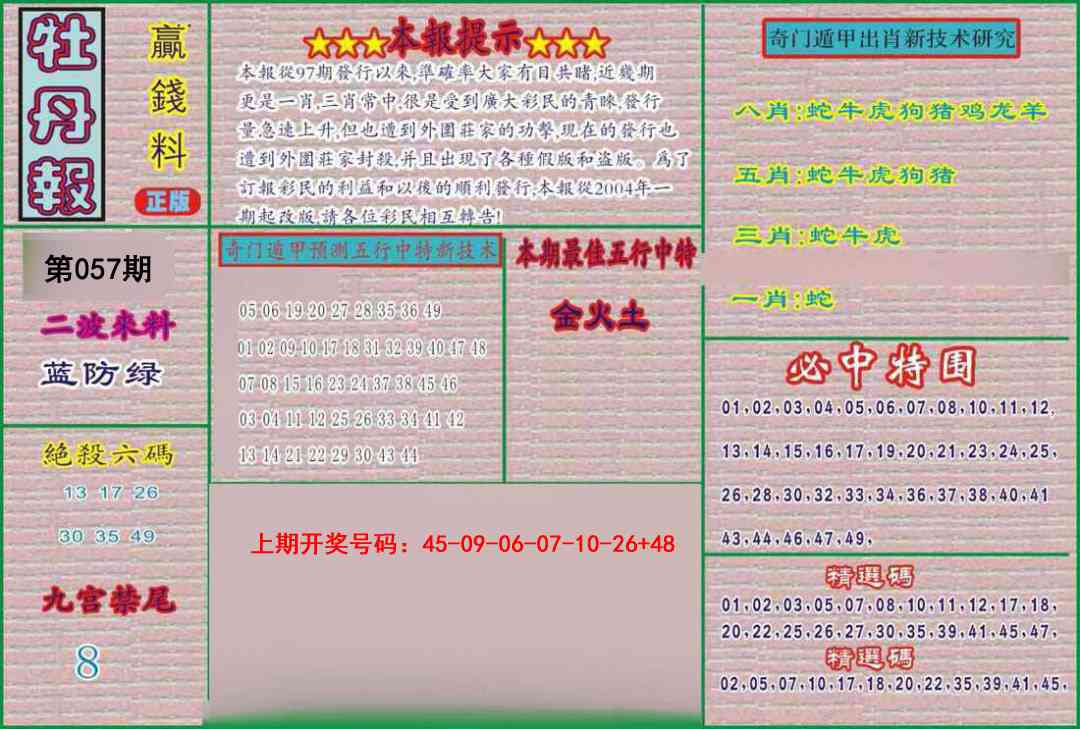 牡丹報
贏錢料
正版
★★★本報提示★★★
本報從97期發行以來,準確率大家有目共睹,近幾期
更是一肖,三肖常中,很是受到廣大彩民的青睞,發行
量急速上升,但也遭到外圍莊家的功擊,現在的發行也
遭到外圍莊家封殺,并且出現了各種假版和盗版。爲了
訂報彩民的利益和以後的順利發行,本報從2004年一
期起改版,請各位彩民相互轉告!
奇门遁甲出肖新技术研究
八肖:蛇牛虎狗猪鸡龙羊
五肖:蛇牛虎狗猪
三肖:蛇牛虎
一肖:蛇
第057期
二波來料
蓝防绿
奇门遁甲预测五行中特新技术
05 06 19 20 27 28 35 36 49
01 02 09 10 17 18 31 32 39 40 47 48
07 08 15 16 23 24 37 38 45 46
03 04 11 12 25 26 33 34 41 42
13 14 21 22 29 30 43 44
本期最佳五行中特
金火土
必中特围
01,02,03,04,05,06,07,08,10,11,12,
13,14,15,16,17,19,20,21,23,24,25,
26,28,30,32,33,34,36,37,38,40,41
43,44,46,47,49,
絕殺六碼
13 17 26
30 35 49
九宫禁尾
8
上期开奖号码：45-09-06-07-10-26+48
精選碼
01,02,03,05,07,08,10,11,12,17,18,
20,22,25,26,27,30,35,39,41,45,47,
精選碼
02,05,07,10,17,18,20,22,35,39,41,45,